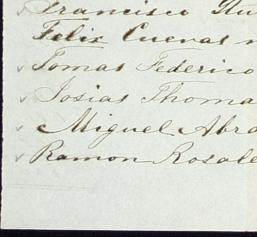 Francisco
Felix Cuevas
Tomas Federico
Josias Thoma
Miguel Abra
Ramon Rosale